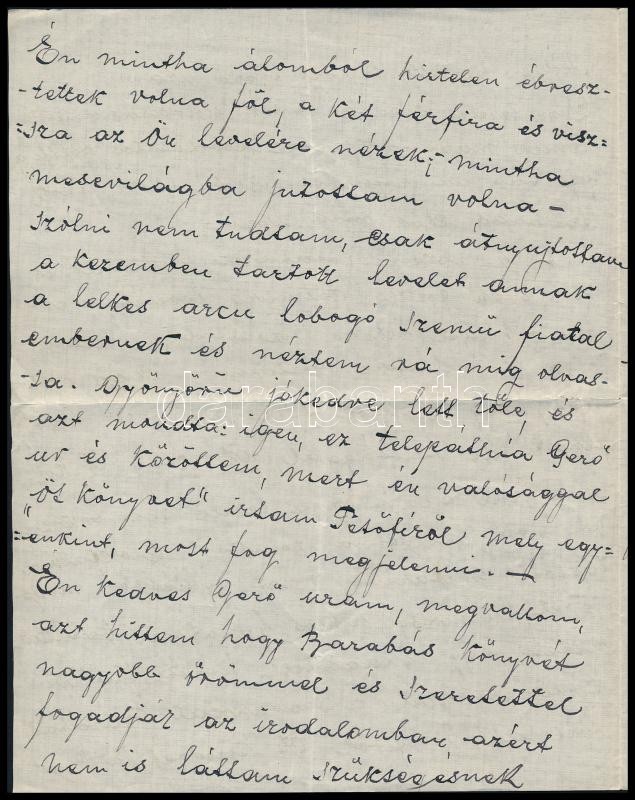 Én mintha álomból hirtelen ébresz-
-tettek volna föl, a két férfira és visz=
=sza az Ön levelére nézek; mintha
mesevilágba jutottam volna –
Szólni nem tudtam, csak átnyujtottam
a kezemben tartott levelet annak
a lelkes arcu lobogó szemü fiatal
embernek és néztem rá mig olvas-
-ta. Gyönyörü jókedve lett tőle, és
azt mondta: igen, ez telepáthia Gerő
ur és közöttem, mert én valósággal
„Öt könyvet" irtam Petőfiről mely egy=
=enkint, most fog megjelenni. —
Én kedves Gerő uram, megvallom,
azt hittem hogy Barabás könyvét
nagyobb örömmel és szeretettel
fogadják az irodalomban, azért
nem is láttam szükségesnek
darabanth